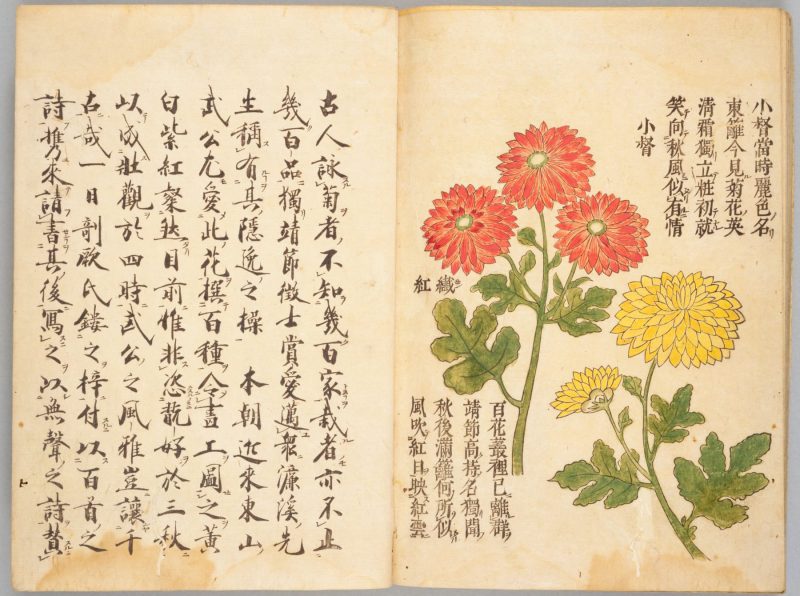 小督當時麗色名
東籬今見菊花英
淸霜獨立粧初就
笑向秋風似有情
小督
纎紅
百花叢裡已離群
靖節高持名獨聞
秋後滿籬何所似
風吹紅日映紅雲
古人詠菊者不知幾百家栽者亦不止
幾百品獨靖節徴士賞愛邁衆濂溪先
生稱有其隱逸之操 本朝近來東山
武公尤愛此花撰百種令畫工圖之黃
白紫紅粲然目前惟非恣翫好於三秋
以成壯觀於四時武公之風雅豈讓千
古哉一日剞劂氏鏤之梓付以百首之
詩携來請書其後寫之以無聲之詩賛